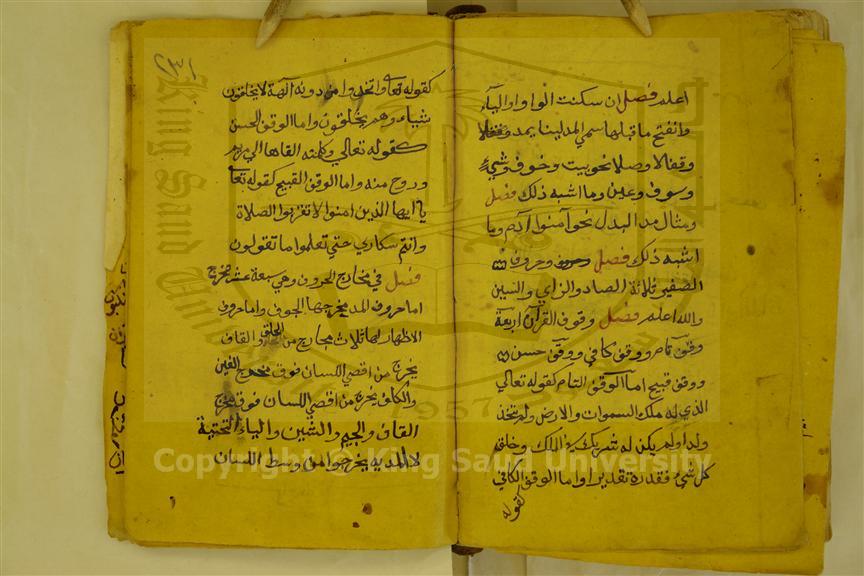 اعلم فصل ان سكنت الواو والياء
وانفتح ما قبلها سمي المد لينا يمد
وقفا لا وصلا نحو بيت وخوف وشيء
وسوف وعين وما اشبه ذلك فصل
ومثال مد البدل نحو آمنوا آدم وما
اشبه ذلك فصل وحروف
الصفير ثلاثة الصاد والزاي والسين
والله اعلم فصل وقوف القرآن اربعة
وقف تام ووقف كافي ووقف حسن
ووقف قبيح اما الوقف التام كقوله تعالي
الذي له ملك السموات والارض ولم يتخذ
ولدا ولم يكن له شريك في الملك وخلق
كل شيء فقدره تقديرا واما الوقف الكافي
كقوله
٢٣١
كقوله تعالى واتخذوا من دونه آلهة لا يخلقون
شياء وهم يخلقون واما الوقف الحسن
كقوله تعالي وكلمته القاها الي مريم
وروح منه واما الوقف القبيح كقوله تعالى
يا ايها الذين امنوا لا تقربوا الصلاة
وانتم سكاري حتي تعلموا ما تقولون
فصل في مخارج الحروف وهي سبعة عشر مخرج
اما حروف المد مخرجها الجوف واما حروف
الاظهار لها ثلاث مخارج من الحلق والقاف
يخرج من اقصي اللسان فوق مخرج الغين
والكاف يخرج من اقصي اللسان فوق مخرج
القاف والجيم والشين والياء التحتية
لا المديه يخرجوا من وسط اللسان
Copyright © King Saud University
King Saud University
1957